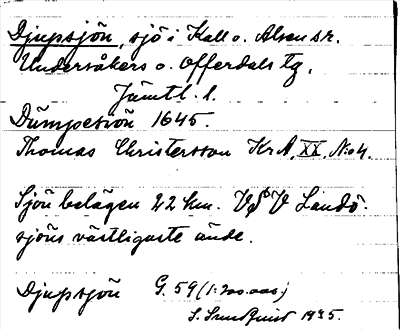 Djupsjön, sjö i Kall o. Alsen sn.
Undersåkers o. Offerdals tg.
Jämtl. l.
Dümpesiön 1645.
Thomas Christersson Kr.A. XX, No 4.
Sjön belägen 22 km. VSV Landö-
sjöns västligaste ände.
Djupsjön G. 59 (1:200.000)
S. Sundquist 1935.